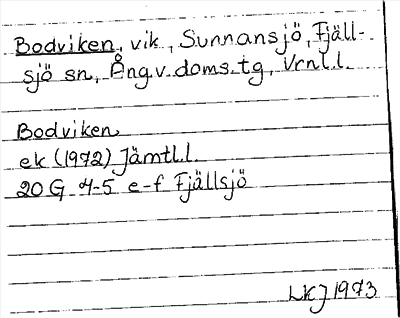 Bodviken, vik, Sunnansjö, Fjäll-
sjö sn, Ång.v.doms.tg, Vrnl.l.
Bodviken
ek (1972) Jämtl.l.
20 G 4-5 e-f Fjällsjö
LKJ 1973